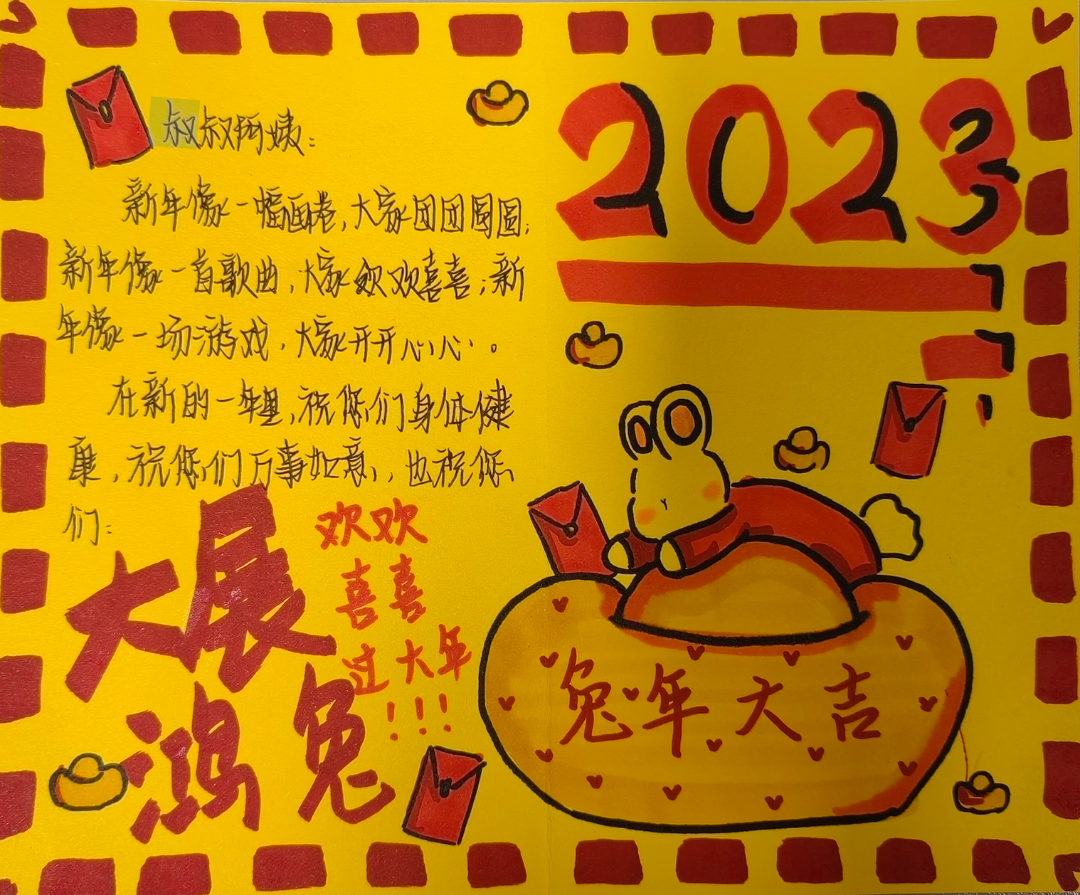 叔叔阿姨：
新年像一幅画卷，大家团团圆圆；
新年像一首歌曲，大家欢欢喜喜；新
年像一场游戏，大家开开心心。
在新的一年里，祝您们身体健
康，祝您们万事如意，也祝您
们：
大展
鸿兔
欢欢
喜喜
过大年
!!!
2023
兔年大吉